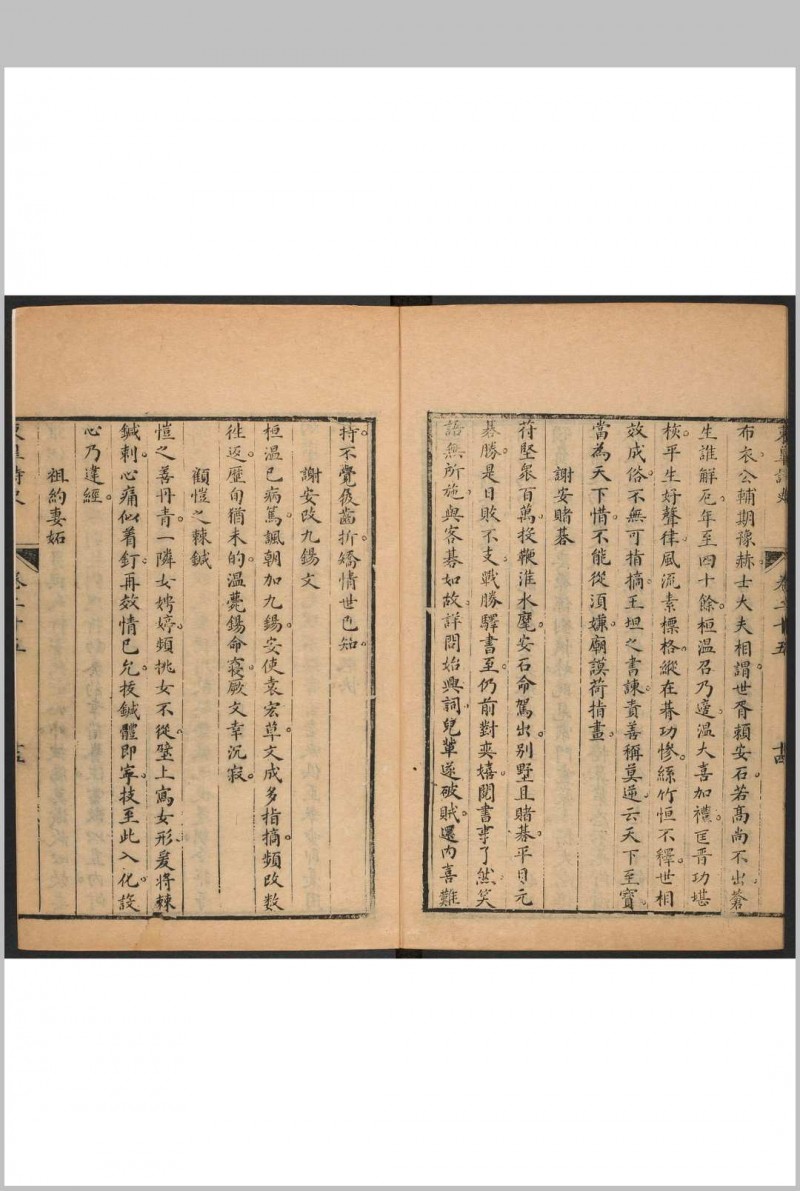 布衣公輔期豫赫士大夫相謂世胥賴安石若高尚不出蒼
生誰解厄年至四十餘桓溫召乃邀溫大喜加禮匡晉功堪
核平生好聲律風流素標格縱在朞功慘絲竹恒不釋世相
效成俗不無可指摘王坦之書諫責善稱莫逆云天下至寶
當為天下惜不能從湏嫌廟謨荷指畫
謝安賭碁
苻堅衆百萬投鞭淮水麾安石命駕出別墅且賭碁平日元
碁勝是日敗不支戰勝驛書至仍前對奕嬉閱書事了然笑
語無所施與客碁如故詳問始興詞兒輩遂破賊還內喜難
卷二十五
持不覺屐齒折矯情世已知
謝安改九錫文
桓温已病篤諷朝加九錫安使袁宏草文成多指摘頻改數
徃返歷旬猶未的温薨錫命寢厥文幸沉寂
顧愷之棘鍼
愷之善丹青一隣女娉婷頻挑女不從壁上寫女形爰將棘
鍼刺心痛似着釘再效情已允抜鍼體即寧技至此入化設
心乃違經
祖約妻妬
卷二十五